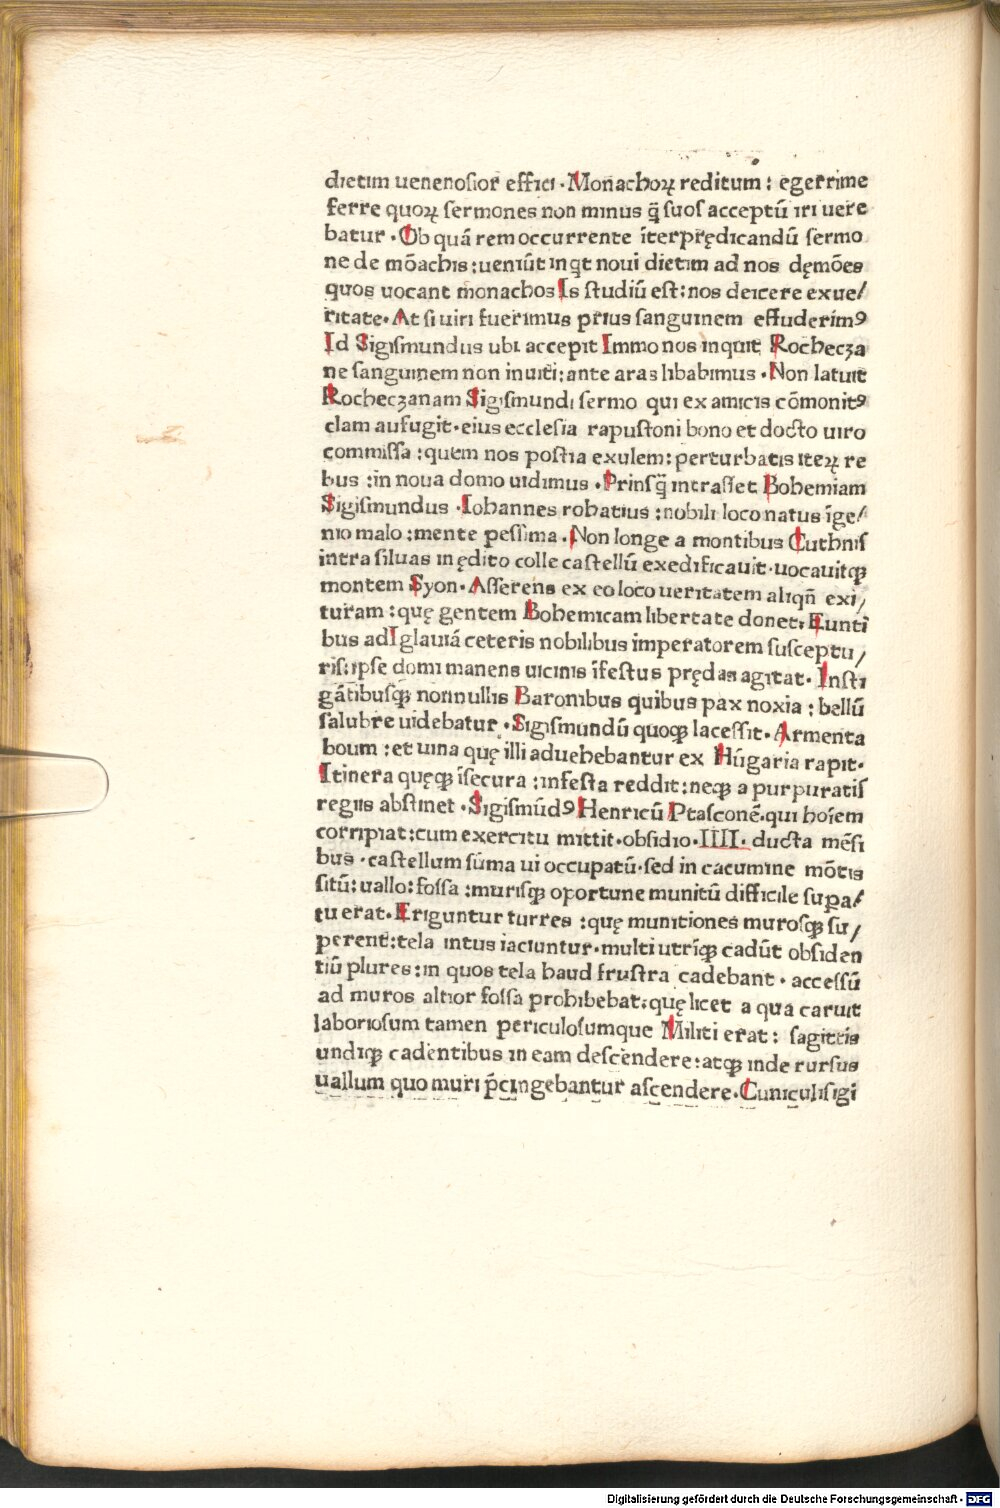 dietim uenenosior effici · Monachoꝝ reditum : egerrime
ferre quoꝝ sermones non minus q̃ suos acceptū iri uere
batur · Ob quā rem occurrente īter prędicandū sermo
ne de mōachis : ueniūt inqͥt noui dietim ad nos dęmōes
quos uocant monachos Is studiū est : nos deicere ex ue/
ritate · At si uiri fuerimus prius sanguinem effuderimꝰ
Id Sigismundus ubi accepit Immo nos inquit Rochecza
ne sanguinem non inuiti : ante aras libabimus · Non latuit
Rocheczanam Sigismundi sermo qui ex amicis cōmonitꝰ
clam aufugit · eius ecclesia rapustoni bono et docto uiro
commissa : quem nos postia exulem : perturbatis iteꝝ re
bus : in noua domo uidimus · Prinsq̃ intrasset Bohemiam
Sigismundus · Iohannes robatius : nobili loco natus īge/
nio malo : mente pessima · Non longe a montibus Cuthnis
intra siluas in ędito colle castellū exedificauit · uocauitqꝫ
montem Syon · Asserens ex eo loco ueritatem aliqñ exi/
turam : quę gentem Bohemicam libertate donet : Eunti
bus ad Iglauiā ceteris nobilibus imperatorem susceptu/
ris : ipse domi manens uicinis īfestus prędas agitat · Insti
gātibusqꝫ nonnullis Baronibus quibus pax noxia : bellū
salubre uidebatur · Sigismundū quoqꝫ lacessit · Armenta
boum : et uina quę illi aduehebantur ex Hūgaria rapit ·
Itinera quęqꝫ īsecura : infesta reddit : neqꝫ a purpuratis
regiis abstinet · Sigismūdꝰ Henricū Ptasconē · qui hoīem
corripiat : cum exercitu mittit · obsidio · IIII · ducta mēsi
bus · castellum sūma ui occupatū · sed in cacumine mōtis
sitū : uallo : fossa : murisqꝫ oportune munitū difficile suꝑa/
tu erat · Eriguntur turres : quę munitiones murosqꝫ su/
perent : tela intus iaciuntur · multi utriqꝫ cadūt obsiden
tiū plures : in quos tela haud frustra cadebant · accessū
ad muros altior fossa prohibebat : quę licet a qua caruit
laboriosum tamen periculosumque Militi erat : sagittis
undiqꝫ cadentibus in eam descendere : atqꝫ inde rursus
uallum quo muri p̄cingebantur ascendere · Cuniculi sigi
Digitalisierung gefördert durch die Deutsche Forschungsgemeinschaft - DFG